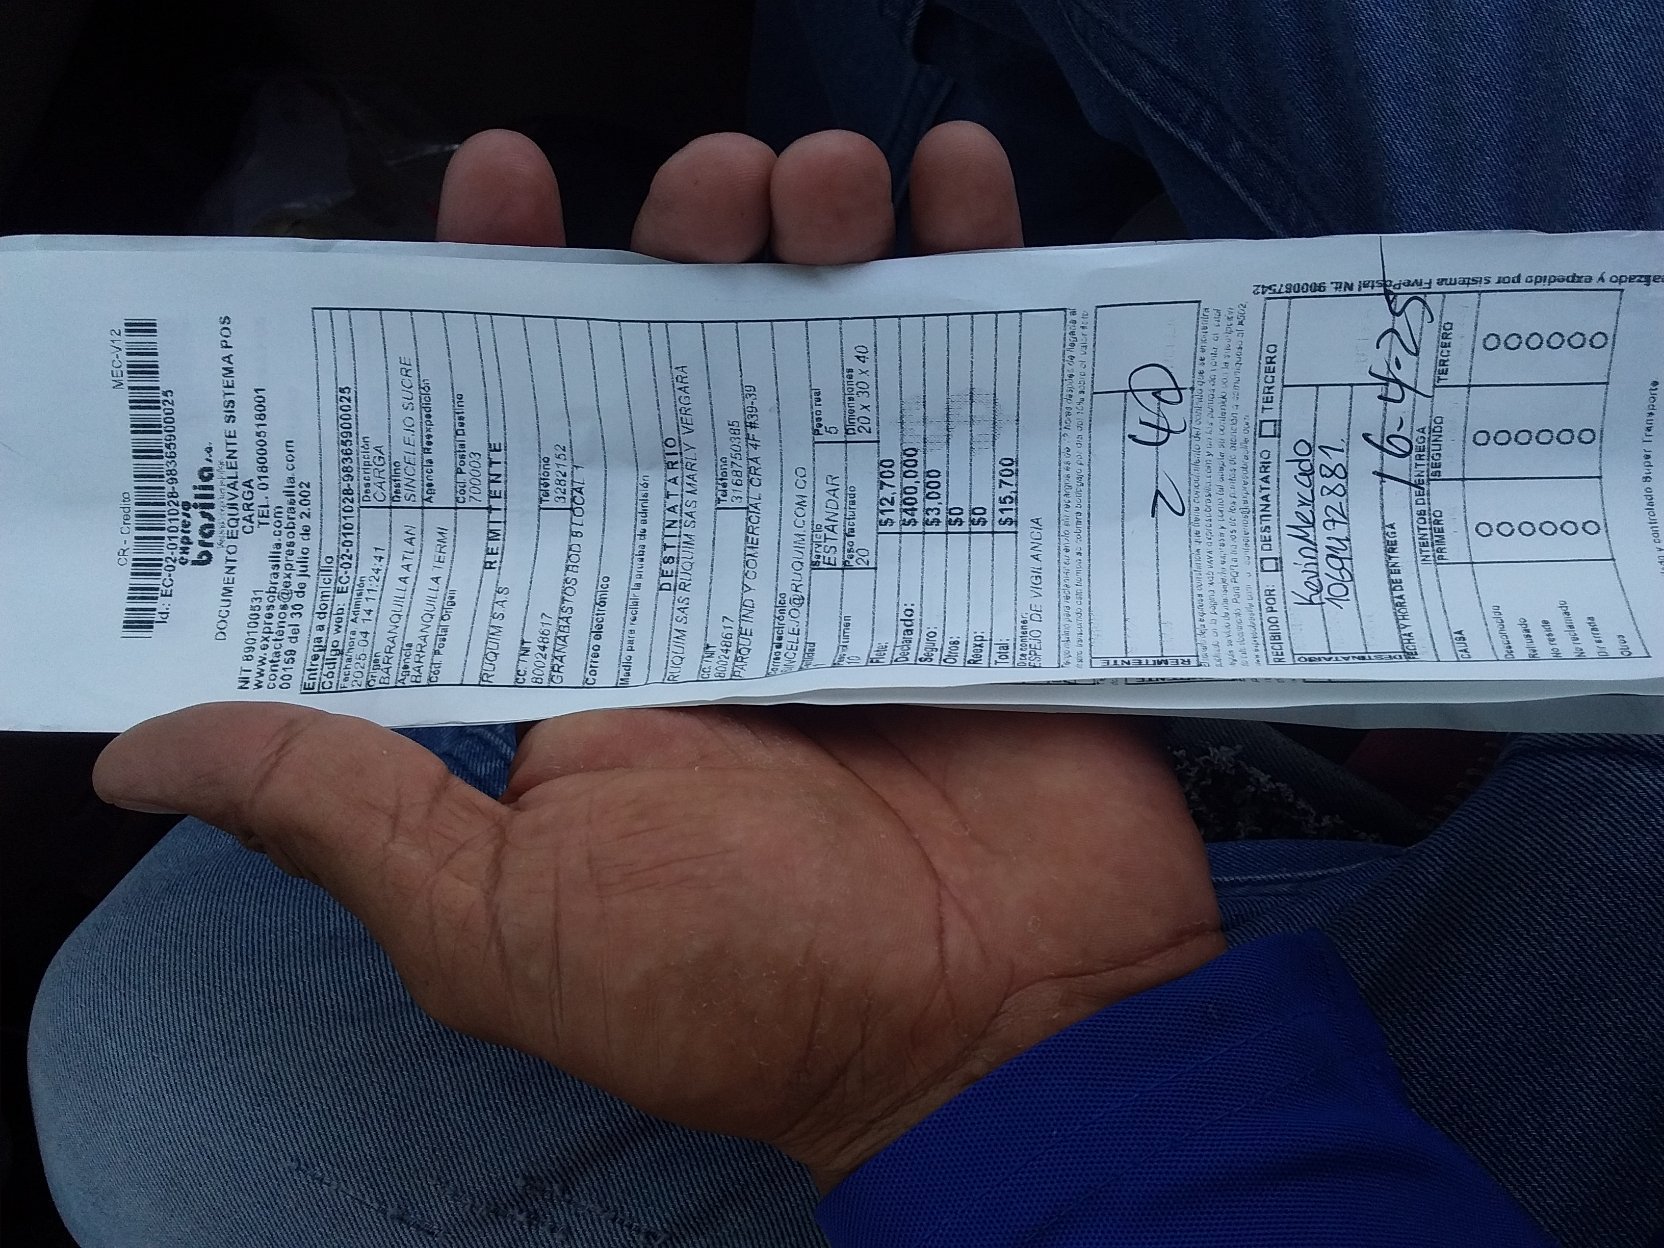 CR - Credito MEC-V12
Id.: EC-02-0101028-98365900025
expreso
brasilia s.a.
DOCUMENTO EQUIVALENTE SISTEMA POS
CARGA
NIT 890100531
www.expresobrasilia.com TEL. 018000518001
contactenos@expresobrasilia.com
00159 del 30 de julio de 2.002
Entrega a domicilio
Código web: EC-02-0101028-98365900025
Fecha/hora Admisión Descripción
2025-04-14 11:24:41 CARGA
Origen Destino
BARRANQUILLA ATLAN SINCELEJO SUCRE
Agencia Agencia Reexpedición
BARRANQUILLA TERMI
Cód. Postal Origen Cód. Postal Destino
700003
REMITENTE
RUQUIM S.A.S
CC / NIT Teléfono
800248617 3282152
GRANABASTOS BOD 8 LOCAL 1
Correo electrónico
Medio para recibir la prueba de admisión
DESTINATARIO
RUQUIM SAS RUQUIM SAS MARLY VERGARA
CC / NIT Teléfono
800248617 3168750385
PARQUE IND Y COMERCIAL CRA 4F #39-339
Correo electrónico
SINCELEJO@RUQUIM.COM.CO
Unidad Servicio Peso real
1 ESTANDAR 5
Peso volumen Peso facturado Dimensiones
10 20 20 X 30 X 40
Flete: $12,700
Declarado: $400,000
Seguro: $3,000
Otros: $0
Reexp: $0
Total: $15,700
Dice contener:
ESPEJO DE VIGILANCIA
REMITENTE
2 40
RECIBIDO POR: DESTINATARIO TERCERO
DESTINATARIO
Kevin Mercado
1069472881.
FECHA Y HORA DE ENTREGA
16-4-25
INTENTOS DE ENTREGA
CAUSA PRIMERO SEGUNDO TERCERO
Desconocido
Rehusado
No reside
No reclamado
Dir errada
Otros
realizado y expedido por sistema FivePostal Nit. 900087542
y controlado Super Transporte